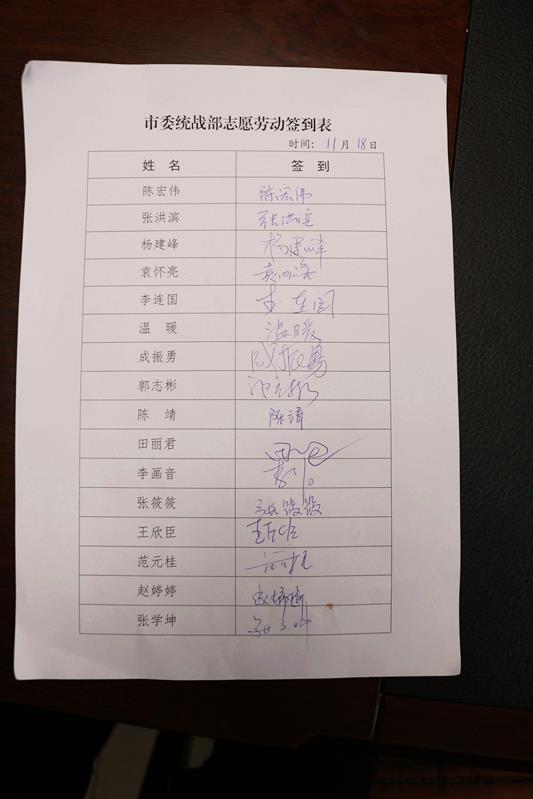 市委统战部志愿劳动签到表
时间: 11月18日
姓 名 签 到
陈宏伟 陈宏伟
张洪滨 张洪滨
杨建峰 杨建峰
袁怀亮
李连国 李连国
温 暖 温暖
成振勇 成振勇
郭志彬
陈 靖 陈靖
田丽君
李画音
张筱筱 张筱筱
王欣臣
范元桂
赵婷婷 赵婷婷
张学坤